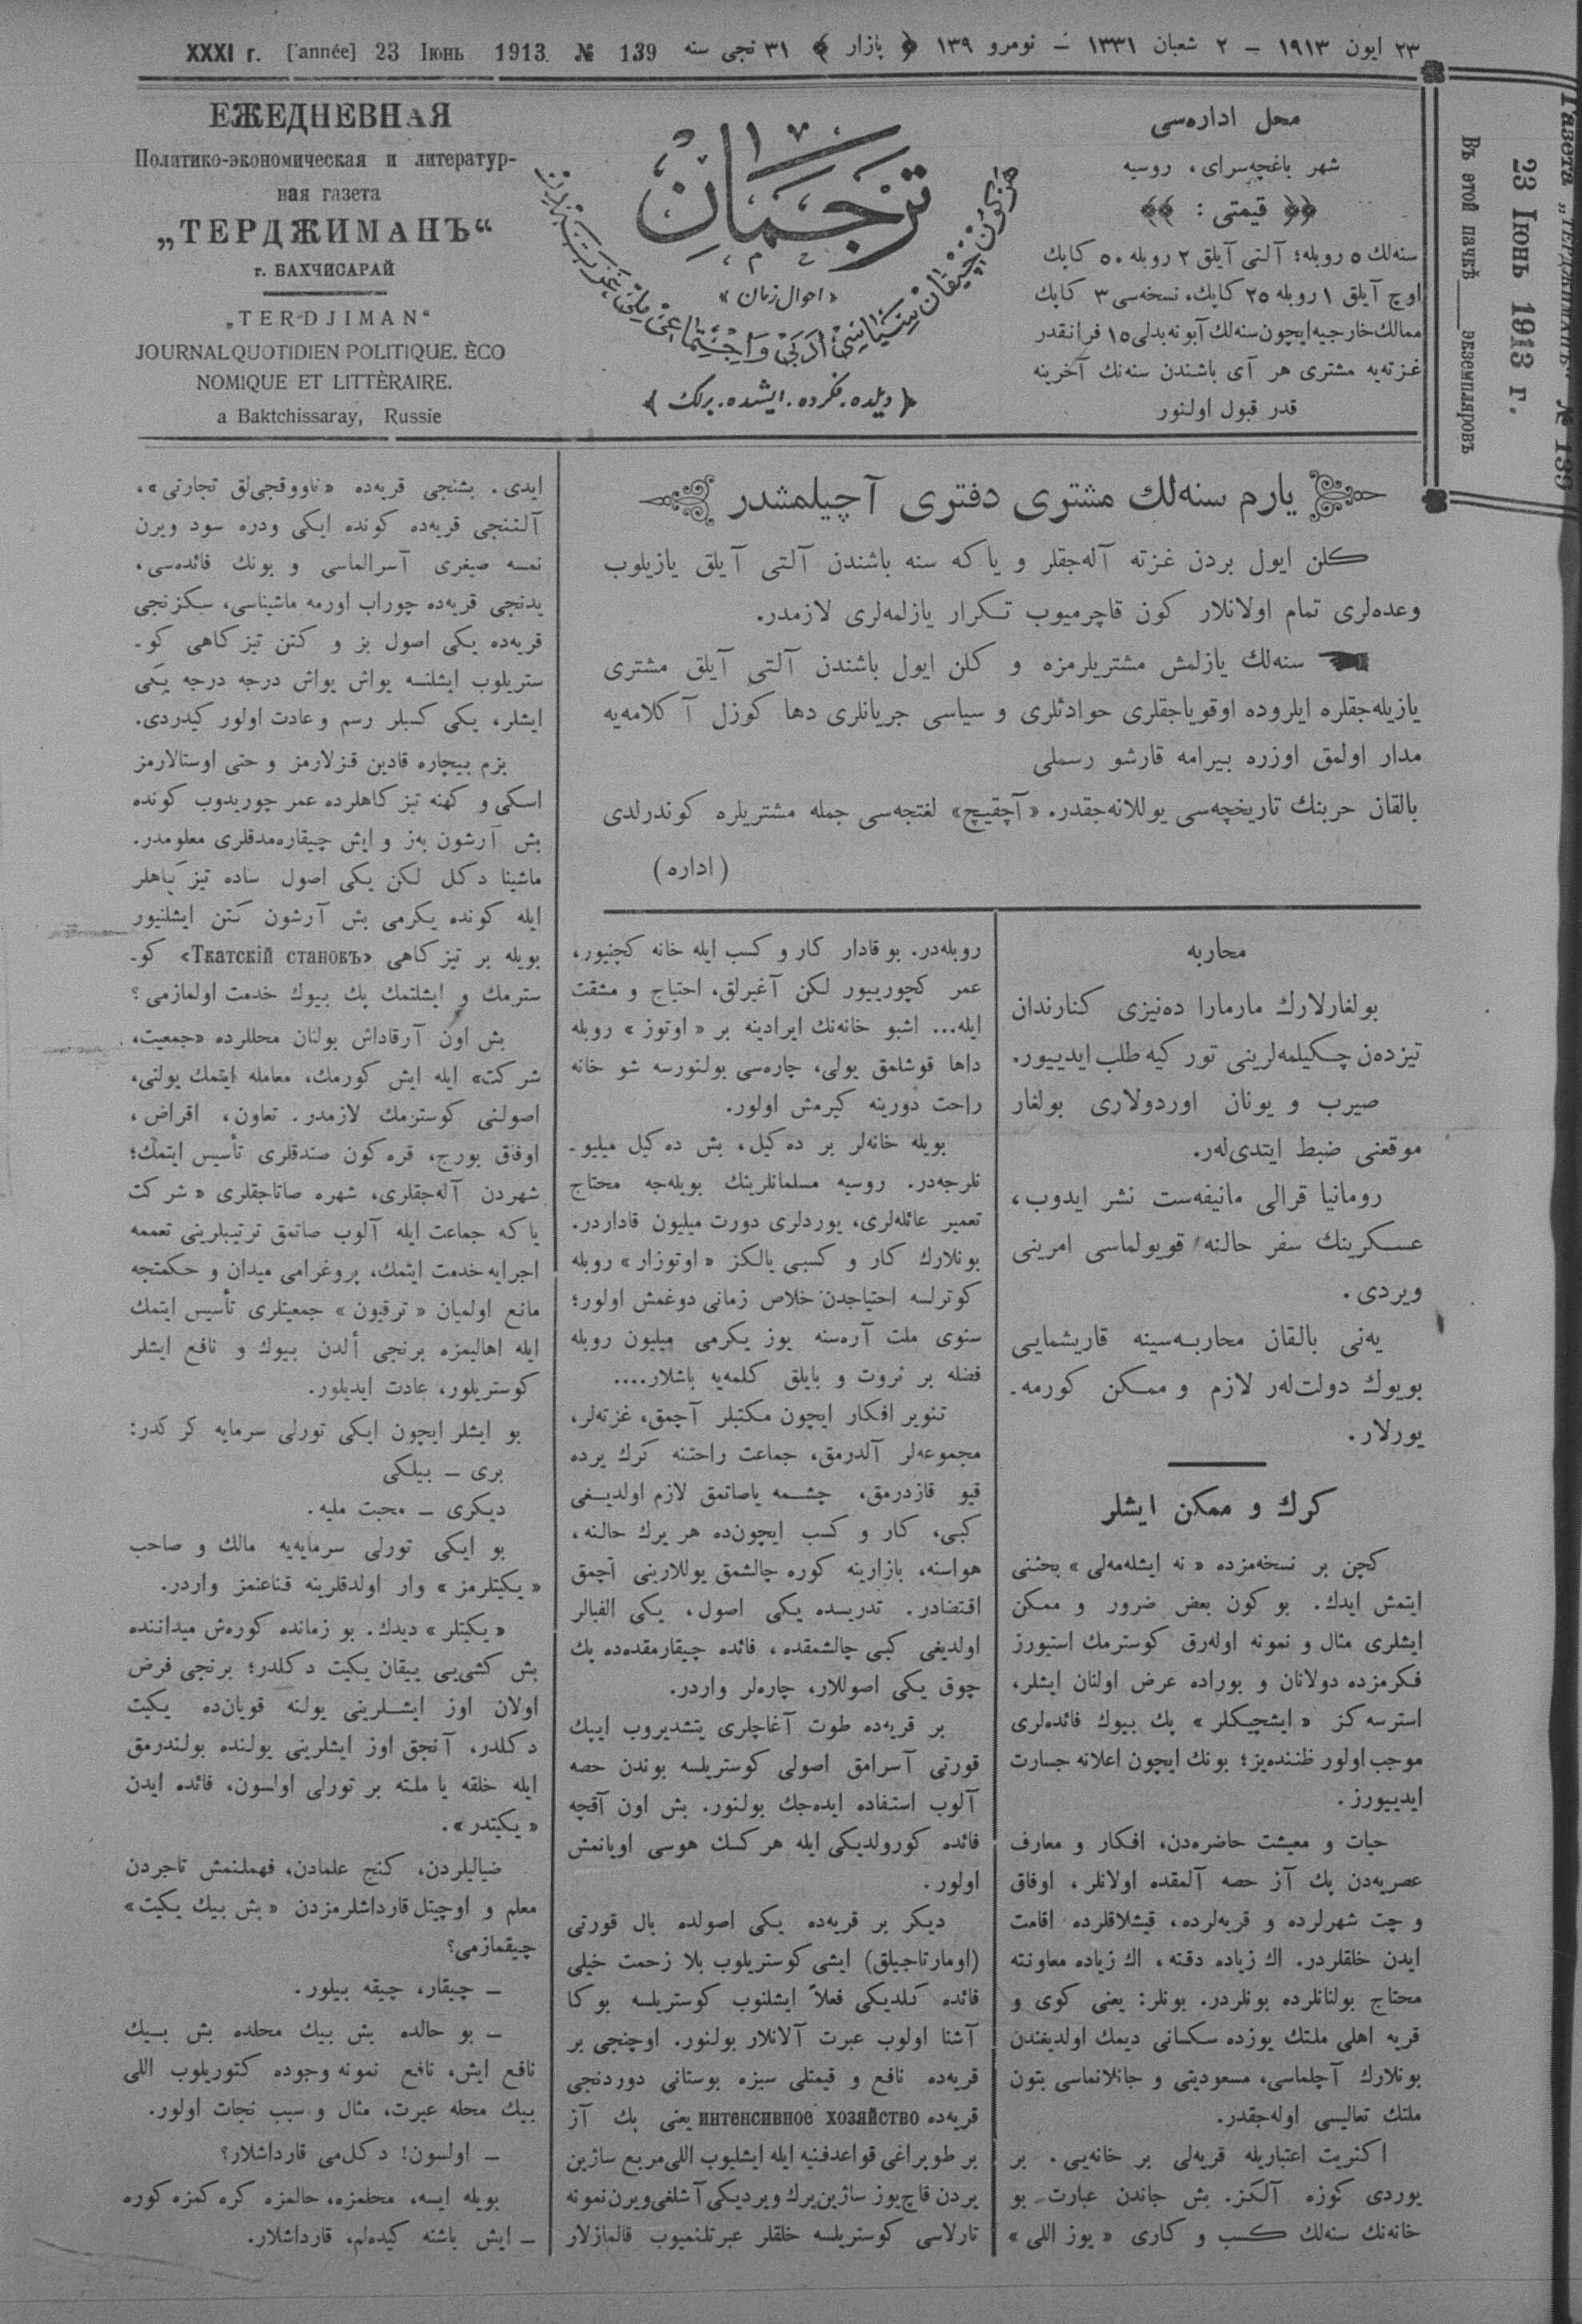 XXXI г. [année] 23 Іюнь 1913. № 139
٢٣ ایون ١٩١٣ – ٢ شعبان ١٣٣١ – نومرو ١٣٩ ﴿ پازار ﴾ ٣١ نجی سنه
ЕЖЕДНЕВНАЯ
Политико-экономическая и литератур-
ная газета
„ТЕРДЖИМАНЪ“
г. БАХЧИСАРАЙ
„TERDJIMAN“
JOURNAL QUOTIDIEN POLITIQUE. ÈCO
NOMIQUE ET LITTÈRAIRE.
a Baktchissaray, Russie
ترجمان
«احوال زمان»
هر كون چیقان سیاسی، ادبی و اجتماعی ملی غزته‌در
﴿ دیلده. فكرده. ایشده. برلك ﴾
محل اداره‌سی
شهر باغچه‌سرای، روسیه
﴿﴿ قیمتی : ﴾﴾
سنه‌لك ٥ روبله؛ آلتی آیلق ٢ روبله ٥٠ كاپك
اوچ آیلق ١ روبله ٢٥ كاپك، نسخه‌سی ٣ كاپك
ممالك خارجیه ایچون سنه‌لك آبونه بدلی ١٥ فرانقدر
غزته‌یه مشتری هر آی باشندن سنه‌نك آخرینه
قدر قبول اولنور
Газета „ТЕРДЖИМАНЪ“ № 139
23 Іюнь 1913 г.
Въ этой пачкѣ ____ экземпляровъ
یارم سنه‌لك مشتری دفتری آچیلمشدر
كلن ایول بردن غزته آله‌جقلر و یا كه سنه باشندن آلتی آیلق یازیلوب
وعده‌لری تمام اولانلار كون قاچرمیوب تكرار یازلمه‌لری لازمدر.
سنه‌لك یازلمش مشتریلرمزه و كلن ایول باشندن آلتی آیلق مشتری
یازیله‌جقلره ایلروده اوقویاجقلری حوادثلری و سیاسی جریانلری دها كوزل آكلامه‌یه
مدار اولمق اوزره بیرامه قارشو رسملی
بالقان حربنك تاریخچه‌سی یوللانه‌جقدر. «آچقیچ» لغتجه‌سی جمله مشتریلره كوندرلدی
(اداره)
محاربه
بولغارلارك مارمارا ده‌نیزی كنارندان
تیزده‌ن چكیلمه‌لرینی توركیه طلب ایدییور.
صیرب و یونان اوردولاری بولغار
موقعنی ضبط ایتدی‌لهر.
رومانیا قرالی مانیفه‌ست نشر ایدوب،
عسكرینك سفر حالنه قویولماسی امرینی
ویردی.
یه‌نی بالقان محاربه‌سینه قاریشمایی
بویوك دولت‌لهر لازم و ممكن كورمه‌-
یورلار.
كرك و ممكن ایشلر
كچن بر نسخه‌مزده «نه ایشله‌مه‌لی» بحثنی
ایتمش ایدك. بو كون بعض ضرور و ممكن
ایشلری مثال و نمونه اوله‌رق كوسترمك استیورز
فكرمزده دولانان و بوراده عرض اولنان ایشلر،
استرسه‌كز «ایشچیكلر» پك بیوك فائده‌لری
موجب اولور ظننده‌یز؛ بونك ایچون اعلانه جسارت
ایدییورز.
حیات و معیشت حاضره‌دن، افكار و معارف
عصریه‌دن پك آز حصه آلمقده اولانلر، اوفاق
و چت شهرلرده و قریه‌لرده، قیشلاقلرده اقامت
ایدن خلقلردر. اك زیاده دقته، اك زیاده معاونته
محتاج بولنانلرده بونلردر. بونلر: یعنی كوی و
قریه اهلی ملتك یوزده سكسانی دیمك اولدیغندن
بونلارك آچلماسی، مسعودیتی و جانلانماسی بتون
ملتك تعالیسی اوله‌جقدر.
اكثریت اعتباریله قریه‌لی بر خانه‌یی. بر
یوردی كوزه آلكز. بش جاندن عبارت بو
خانه‌نك سنه‌لك كسب و كاری «یوز اللی»
روبله‌در. بو قادار كار و كسب ایله خانه كچنیور،
عمر كچورییور لكن آغیرلق، احتیاج و مشقت
ایله... اشبو خانه‌نك ایرادینه بر «اوتوز» روبله
داها قوشلمق یولی، چاره‌سی بولنورسه شو خانه
راحت دورینه كیرمش اولور.
بویله خانه‌لر بر ده‌كیل، بش ده‌كیل میلیو-
نلرجه‌در. روسیه مسلمانلرینك بویله‌جه محتاج
تعمیر عائله‌لری، یوردلری دورت میلیون قاداردر.
بونلارك كار و كسبی یالكز «اوتوزار» روبله
كوترلسه احتیاجدن خلاص زمانی دوغمش اولور؛
سنوی ملت آره‌سنه یوز یكرمی میلیون روبله
فضله بر ثروت و بایلق كلمه‌یه باشلار....
تنویر افكار ایچون مكتبلر آچمق، غزته‌لر،
مجموعه‌لر آلدرمق، جماعت راحتنه كرك یرده
قیو قازدرمق، چشمه یاصاتمق لازم اولدیغی
كبی، كار و كسب ایچون‌ده هر یرك حالنه،
هواسنه، بازارینه كوره چالشمق یوللارینی آچمق
اقتضادر. تدریسده یكی اصول، یكی الفبالر
اولدیغی كبی چالشمقده، فائده چیقارمقده‌ده پك
چوق یكی اصوللار، چاره‌لر واردر.
بر قریه‌ده طوت آغاچلری یتشدیروب ایپك
قورتی آسرامق اصولی كوستریلسه بوندن حصه
آلوب استفاده ایده‌جك بولنور. بش اون آقچه
فائده كورولدیكی ایله هر كسك هوسی اویانمش
اولور.
دیكر بر قریه‌ده یكی اصولده بال قورتی
(اومارتاجیلق) ایشی كوستریلوب بلا زحمت خیلی
فائده كلدیكی فعلاً ایشلنوب كوستریلسه بوكا
آشنا اولوب عبرت آلانلار بولنور. اوچنجی بر
قریه‌ده نافع و قیمتلی سبزه بوستانی دوردنجی
قریه‌ده интенсивное хозяйство یعنی پك آز
بر طوپراغی قواعدفنیه ایله ایشلیوب اللی‌مربع ساژین
یردن قاچ یوز ساژین یرك ویردیكی آشلغی ویرن نمونه
تارلاسی كوستریلسه خلقلر عبرتلنمیوب قالمازلار
ایدی. بشنجی قریه‌ده «تاووقجی‌لق تجارتی»،
آلتنجی قریه‌ده كونده ایكی ودره سود ویرن
نمسه صیغری آسرالماسی و بونك فائده‌سی،
یدنجی قریه‌ده چوراب اورمه ماشیناسی، سكزنجی
قریه‌ده یكی اصول بز و كتن تیزكاهی كو-
ستریلوب ایشلنسه یواش یواش درجه درجه یكی
ایشلر، یكی كسبلر رسم و عادت اولور كیدردی.
بزم بیچاره قادین قزلارمز و حتی اوستالارمز
اسكی و كهنه تیزكاهلرده عمر چوریدوب كونده
بش آرشون به‌ز و ایش چیقاره‌مدقلری معلومدر.
ماشینا دكل لكن یكی اصول ساده تیزكاهلر
ایله كونده یكرمی بش آرشون كتن ایشلنیور
بویله بر تیزكاهی «Ткатскій станокъ» كو-
سترمك و ایشلتمك پك بیوك خدمت اولمازمی؟
بش اون آرقاداش بولنان محللرده «جمعیت،
شركت» ایله ایش كورمك، معامله ایتمك یولنی،
اصولنی كوسترمك لازمدر. تعاون، اقراض،
اوفاق بورج، قره كون صندقلری تأسیس ایتمك؛
شهردن آله‌جقلری، شهره صاتاجقلری «شركت
یا كه جماعت ایله آلوب صاتمق ترتیبلرینی تعممه
اجرایه خدمت ایتمك، پروغرامی میدان و حكمتجه
مانع اولمیان «ترقیون» جمعیتلری تأسیس ایتمك
ایله اهالیمزه برنجی ألدن بیوك و نافع ایشلر
كوستریلور، عادت ایدیلور.
بو ایشلر ایچون ایكی تورلی سرمایه كركدر:
بری – بیلكی
دیكری – محبت ملیه.
بو ایكی تورلی سرمایه‌یه مالك و صاحب
«یكیتلرمز» وار اولدقلرینه قناعتمز واردر.
«یكیتلر» دیدك. بو زمانده كوره‌ش میداننده
بش كشی‌یی ییقان یكیت دكلدر؛ برنجی فرض
اولان اوز ایشلرینی یولنه قویان‌ده یكیت
دكلدر، آنچق اوز ایشلرینی یولنده بولندرمق
ایله خلقه یا ملته بر تورلی اولسون، فائده ایدن
«یكیتدر».
ضیالیلردن، كنج علمادن، فهملنمش تاجردن
معلم و اوچیتل قارداشلرمزدن «بش بیك یكیت»
چیقمازمی؟
– چیقار، چیقه بیلور.
– بو حالده بش بیك محلده بش بیك
نافع ایش، نافع نمونه وجوده كتوریلوب اللی
بیك محله عبرت، مثال و سبب نجات اولور.
– اولسون! دكل‌می قارداشلار؟
بویله ایسه، محلمزه، حالمزه كره‌كمزه كوره
– ایش باشنه كیده‌لم، قارداشلار.